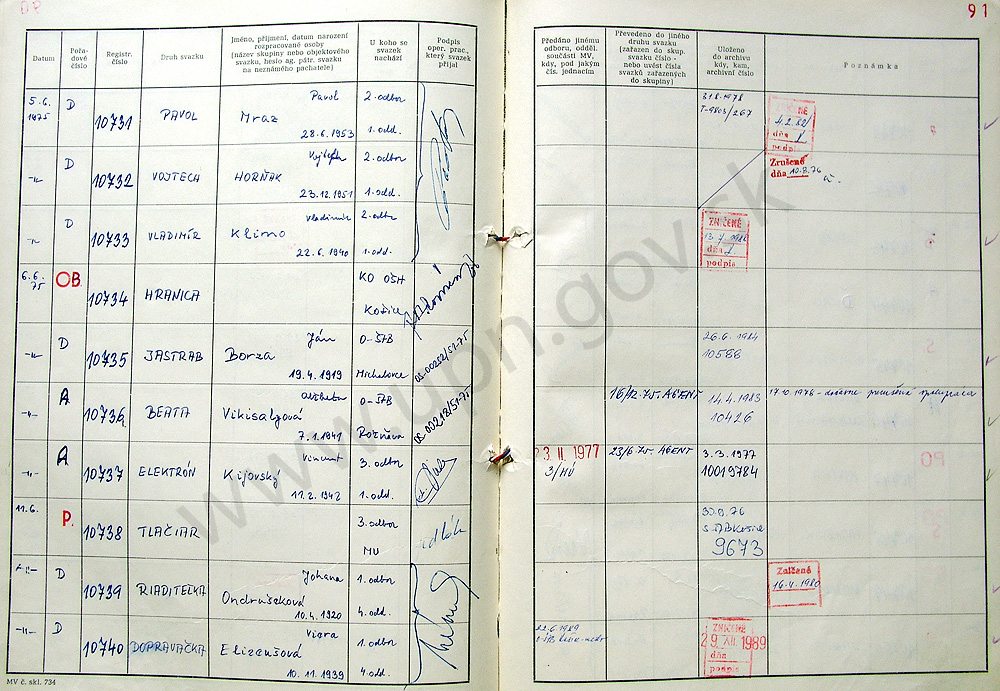 91
Datum
Pořa-
dové
číslo
Registr.
číslo
Druh svazku
Jméno, příjmení, datum narození
rozpracované osoby
(název skupiny nebo objektového
svazku, heslo ag. pátr. svazku
na neznámého pachatele)
U koho se
svazek
nachází
Podpis
oper. prac.,
který svazek
přijal
Předáno jinému
odboru, odděl.
součásti MV,
kdy, pod jakým
čís. jednacím
Převedeno do jiného
druhu svazku
(zařazen do skup.
svazku číslo -
nebo uvést čísla
svazků zařazených
do skupiny)
Uloženo
do archivu
kdy, kam,
archivní číslo
Poznámka
5.6.
1975
D
10731
PAVOL
Pavol
Mraz
28.6.1953
2. odbor
1. odd.
31.8.1978
4.2.82
dňa
podpis
-"-
D
10732
VOJTECH
Vojtech
HORŇAK
23.12.1951
2. odbor
1. odd.
Zrušené
dňa 10.8.76
-"-
D
10733
VLADIMÍR
Vladimír
Klimo
22.6.1940
2. odbor
1. odd.
ZNIČENÉ
dňa
podpis
6.6.
75
OB
10734
HRANICA
KO OŠH
Košice
-"-
D
10735
JASTRAB
Ján
Borza
19.4.1919
O-ŠtB
Michalovce
OS-00252/S1-75
26.6.1984
10586
-"-
A
10736
BEATA
Alžbeta
7.1.1941
O-ŠtB
Rožňava
16/12.75. AGENT
14.4.1983
10426
17.10.1978 -
-"-
A
10737
ELEKTRÓN
Vincent
Kijovský
11.2.1942
3. odbor
1. odd.
23 II 1977
23/6.75. AGENT
3.3.1977
10019784
11.6.
P.
10738
TLAČIAR
3. odbor
MU
30.9.76
9673
-"-
D
10739
RIADITEĽKA
Johana
Ondrušeková
10.4.1920
1. odbor
4. odd.
Zničené
16.V.1980
-"-
D
10740
DOPRAVÁČKA
Viera
Elizeušová
10.11.1939
1. odbor
4. odd.
22.6.1989
ZNIČENÉ
29 XII. 1989
dňa
podpis
MV č. skl. 734
www.upn.gov.sk